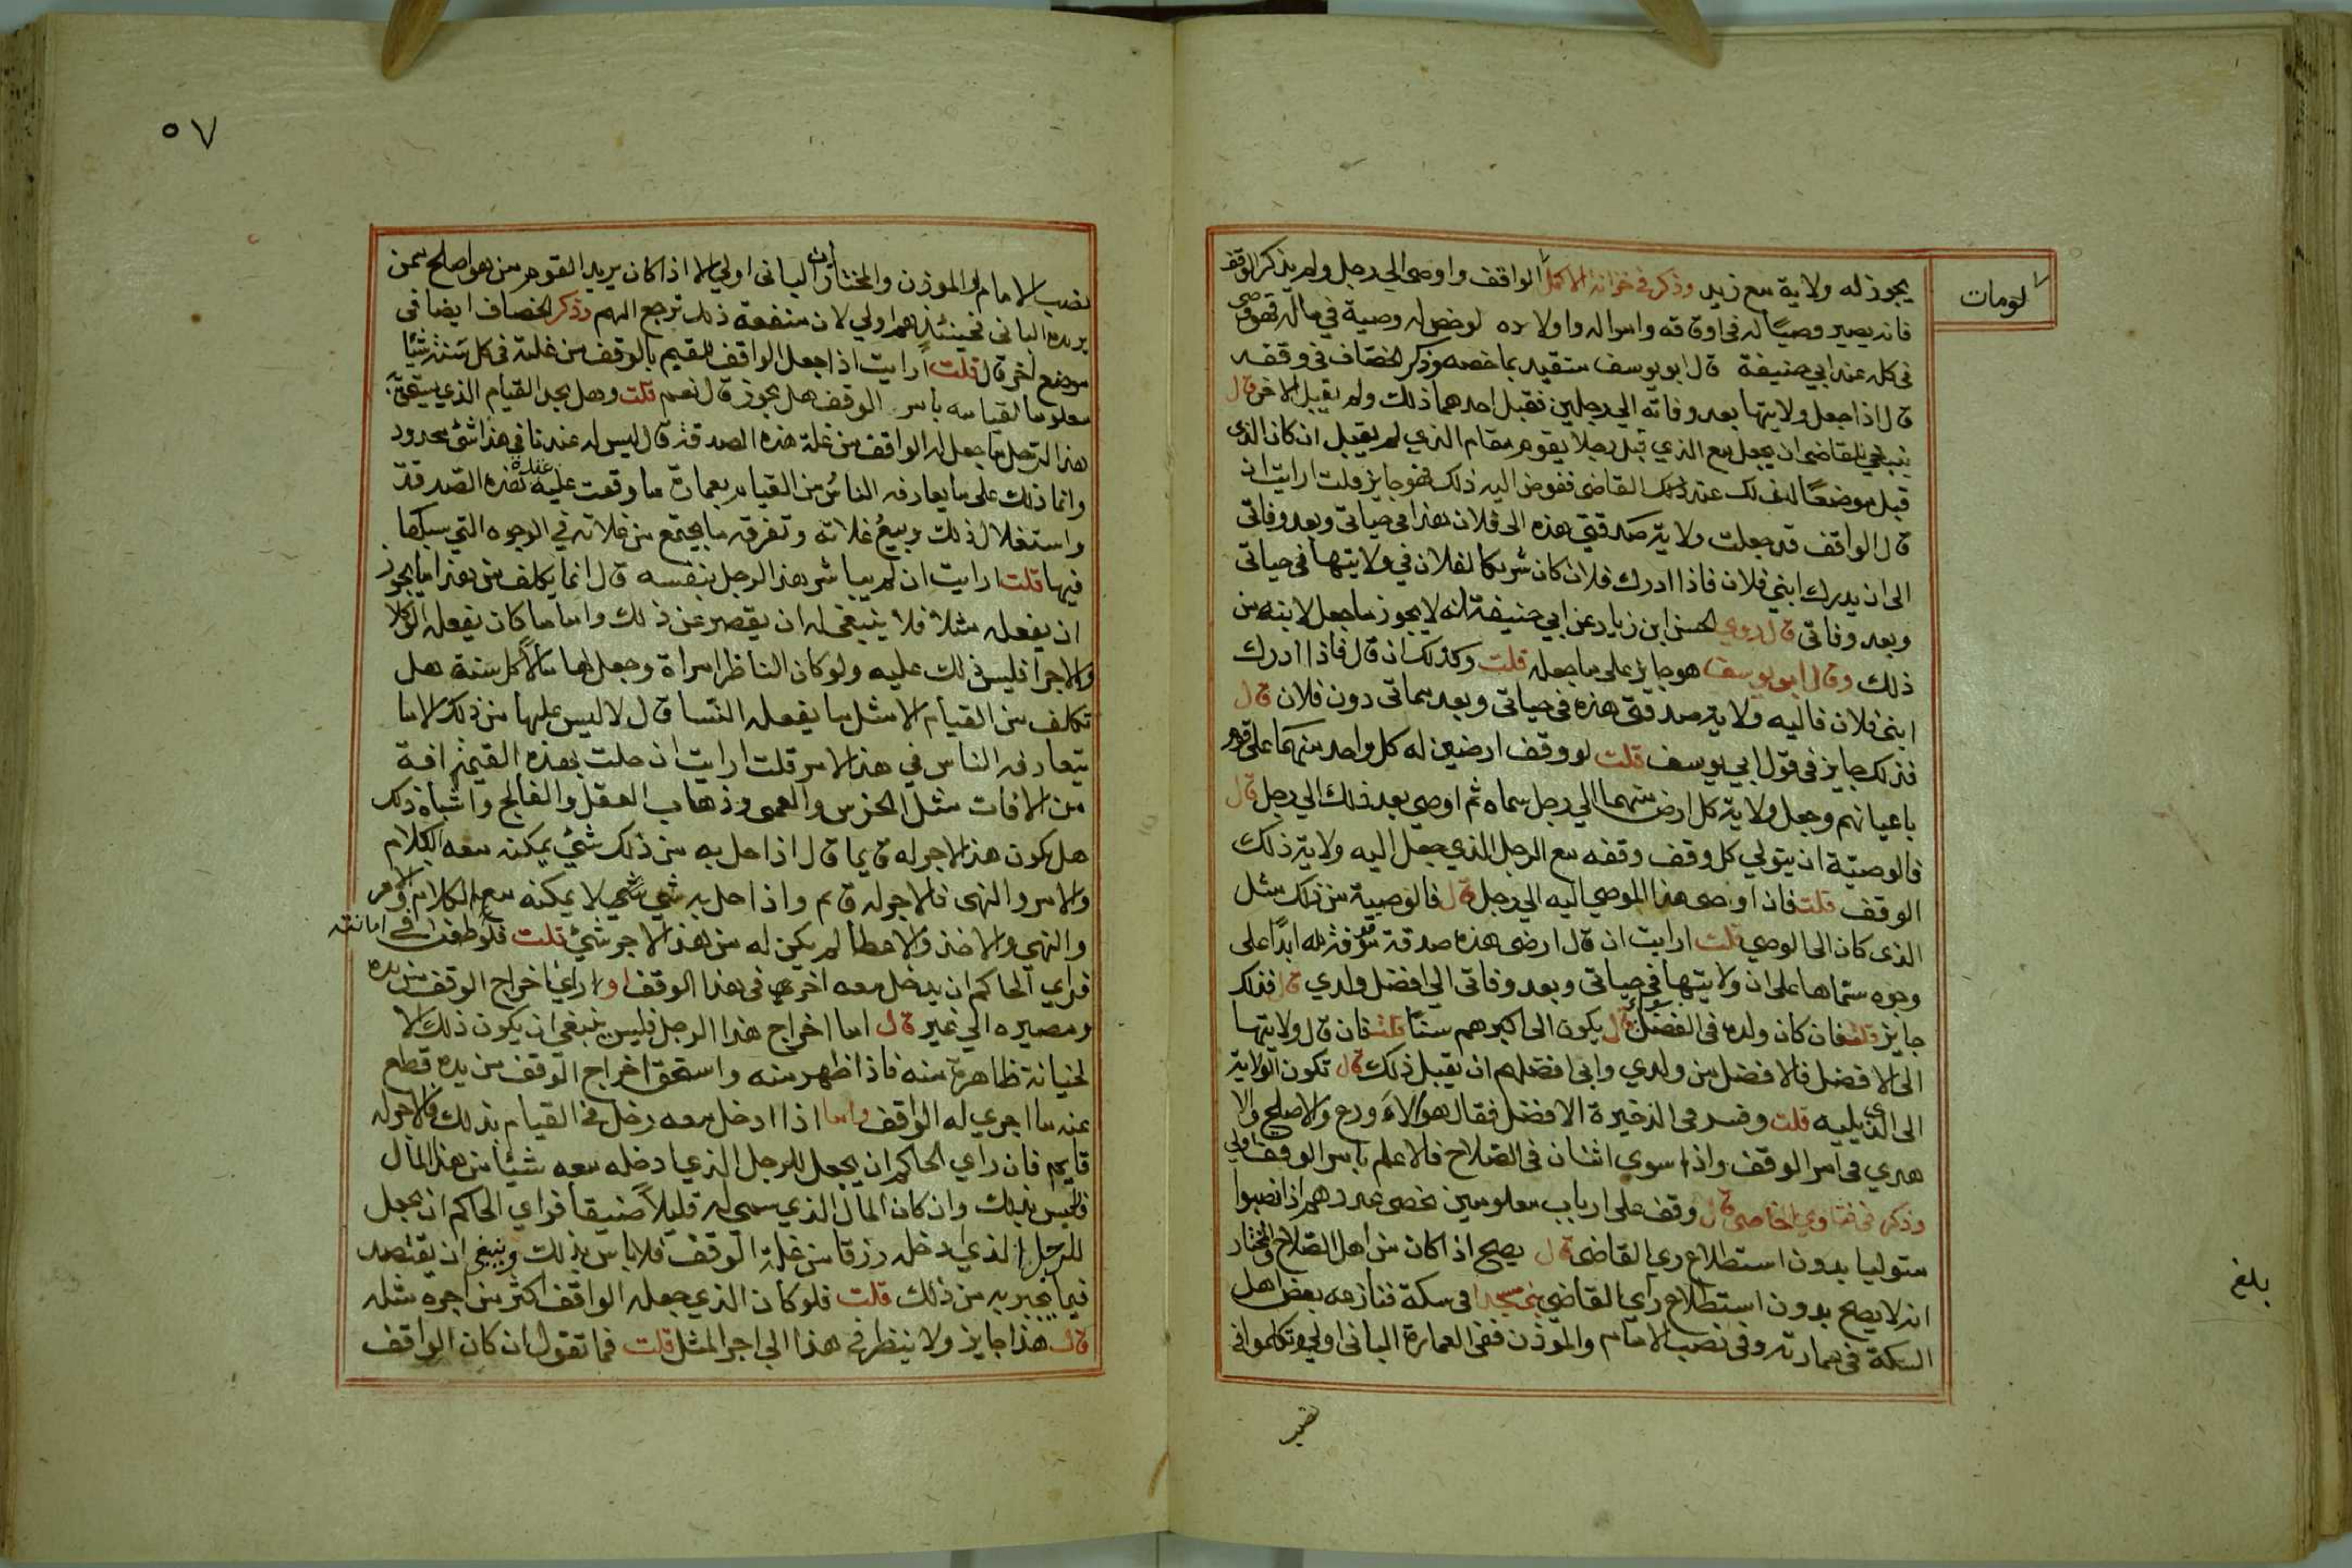 لومات
يجوز له ولاية مع زيد وذكر في خزانة الاكمل الواقف واوصى الي رجل ولم يذكر الوقف
فانه يصير وصيًا له في اوقافه وامواله واولاده لو خص له وصية في ماله فهو وصي
في كله عند ابي حنيفة قال ابو يوسف متقيد بما خصه وذكر الخصّاف في وقفه
قال اذا جعل ولايتها بعد وفاته الي رجلين فقبل احدهما ذلك ولم يقبل الاخر قال
ينبغي للقاضي ان يجعل مع الذي قبل رجلا يقوم مقام الذي لم يقبل ان كان الذي
قبل موضعًا لذلك عند القاضي ففوض اليه ذلك فهو جايز قلت ارايت ان
قال الواقف قد جعلت ولاية صدقتي هذه الى فلان هذا في حياتي وبعد وفاتي
الى ان يدرك ابني فلان فاذا ادرك فلان كان شريكا لفلان في ولايتها في حياتي
وبعد وفاتي قال روي الحسن ابن زياد عن ابي حنيفة انه لا يجوز ما جعل لابنه من
ذلك وقال ابو يوسف هو جايز على ما جعله قلت وكذلك ان قال فاذا ادرك
ابني فلان فاليه ولاية صدقتي هذه في حياتي وبعد مماتي دون فلان قال
فذلك جايز في قول ابي يوسف قلت لو وقف ارضين له كل واحد منهما على قوم
باعيانهم وجعل ولاية كل ارض منهما الي رجل سماه ثم اوصي بعد ذلك الي رجل قال
فالوصيّة ان يتولي كل وقف وقفه مع الرجل الذي جعل اليه ولاية ذلك
الوقف قلت فان اوصى هذا الموصي اليه الي رجل قال فالوصية من ذلك مثل
الذي كان الى الوصي قلت ارايت ان قال ارضي هذه صدقة موقوفة لله ابدًا على
وجوه سمّاها على ان ولايتها في حياتي وبعد وفاتي الي افضل ولدي قال فذلك
جايز قلت فان كان ولده في الفضل سواء قال يكون الى اكبرهم سنًا قلت فان قال ولايتها
الى الافضل فالافضل من ولدي وابى افضلهم ان يقبل ذلك قال تكون الولاية
الى الذي يليه قلت وفسر في الذخيرة الافضل فقال هو الاورع والاصلح والا
هدي في امر الوقف واذا اسوي اثنان في الصّلاح فالاعلم بامر الوقف اولي
وذكر في فتاوي الخاصي قال وقف على ارباب معلومين تحصى عددهم اذا نصبوا
متوليا بدون استطلاع رى القاضي قال يصح اذا كان من اهل الصّلاح والمختار
انه لا يصح بدون استطلاع راي القاضي بنى مسجدا في سكة فنازعه بعض اهل
السكة في عمارته وفي نصب الامام والموذن ففي العمارة الباني اولي وتكلموا في
بلغ
نصب
٥٧
نصب الامام والموذن والمختار ان الباني اولي الا اذا كان يريد القوم من هو اصلح ممن
يريده الباني فحينئذ هم اولي لان منفعة ذلك ترجع اليهم وذكر الخصاف ايضا في
موضع اخر قال قلت ارايت اذا جعل الواقف للقيم بالوقف من غلته في كل سنة شيئا
معلوما لقيامه بامر الوقف هل يجوز قال نعم قلت وهل يجد القيام الذي يستحق به
هذا الرّجل ما جعل له الواقف من غلة هذه الصدقة قال ليس له عندنا في هذا شئ محدود
وانما ذلك على ما يعارفه الناس من القيام بعمارة ما وقعت عليه عقدة هذه الصّدقة
واستغلال ذلك وبيع غلاته وتفرقه ما يجتمع من غلاته في الوجوه التي سبلها
فيها قلت ارايت ان لم يباشر هذا الرجل بنفسه قال انما يكلف من هذا ما يجوز
ان يفعله مثلا فلا ينبغي له ان يقصر عن ذلك واما ما كان يفعله الوكلا
والاجرا فليس ذلك عليه ولو كان الناظر امراة وجعل لها مالا كل سنة هل
تكلف من القيام الا مثل ما يفعله النّسا قال لا ليس عليها من ذلك الا ما
يتعارفه الناس في هذا الامر قلت ارايت ان حلت بهذه القيّمة افة
من الافات مثل الخرس والعمى وذهاب العقل والفالج واشباه ذلك
هل يكون هذا الاجر له قايما قال اذا حل به من ذلك شئ يمكنه معه الكلام
والامر والنهى فالاجر له قايم واذا حل به شئ لا يمكنه معه الكلام والامر
والنهي والاخذ والاعطا لم يكن له من هذا الاجر شئ قلت فلو طعن في امانته
فراي الحاكم ان يدخل معه اخر في هذا الوقف او راي اخراج الوقف من يده
ومصيره الي غير قال اما اخراج هذا الرجل فليس ينبغي ان يكون ذلك الا
لخيانة ظاهرة منه فاذا ظهر منه واستحق اخراج الوقف من يده قطع
عنه ما اجري له الواقف واما اذا ادخل معه رجل في القيام بذلك فالاجر له
قايم فان راي الحاكم ان يجعل للرجل الذي ادخله معه شيئا من هذا المال
فلا بأس بذلك وان كان المال الذي سمي له قليلا ضيقا فراي الحاكم ان يجعل
للرجل الذي ادخله رزقا من غلة الوقف فلا باس بذلك وينبغي ان يقتصد
فيما يجريه من ذلك قلت فلو كان الذي جعله الواقف اكثر من اجره مثله
قال هذا جايز ولا ينظر في هذا الي اجر المثل قلت فما تقول ان كان الواقف